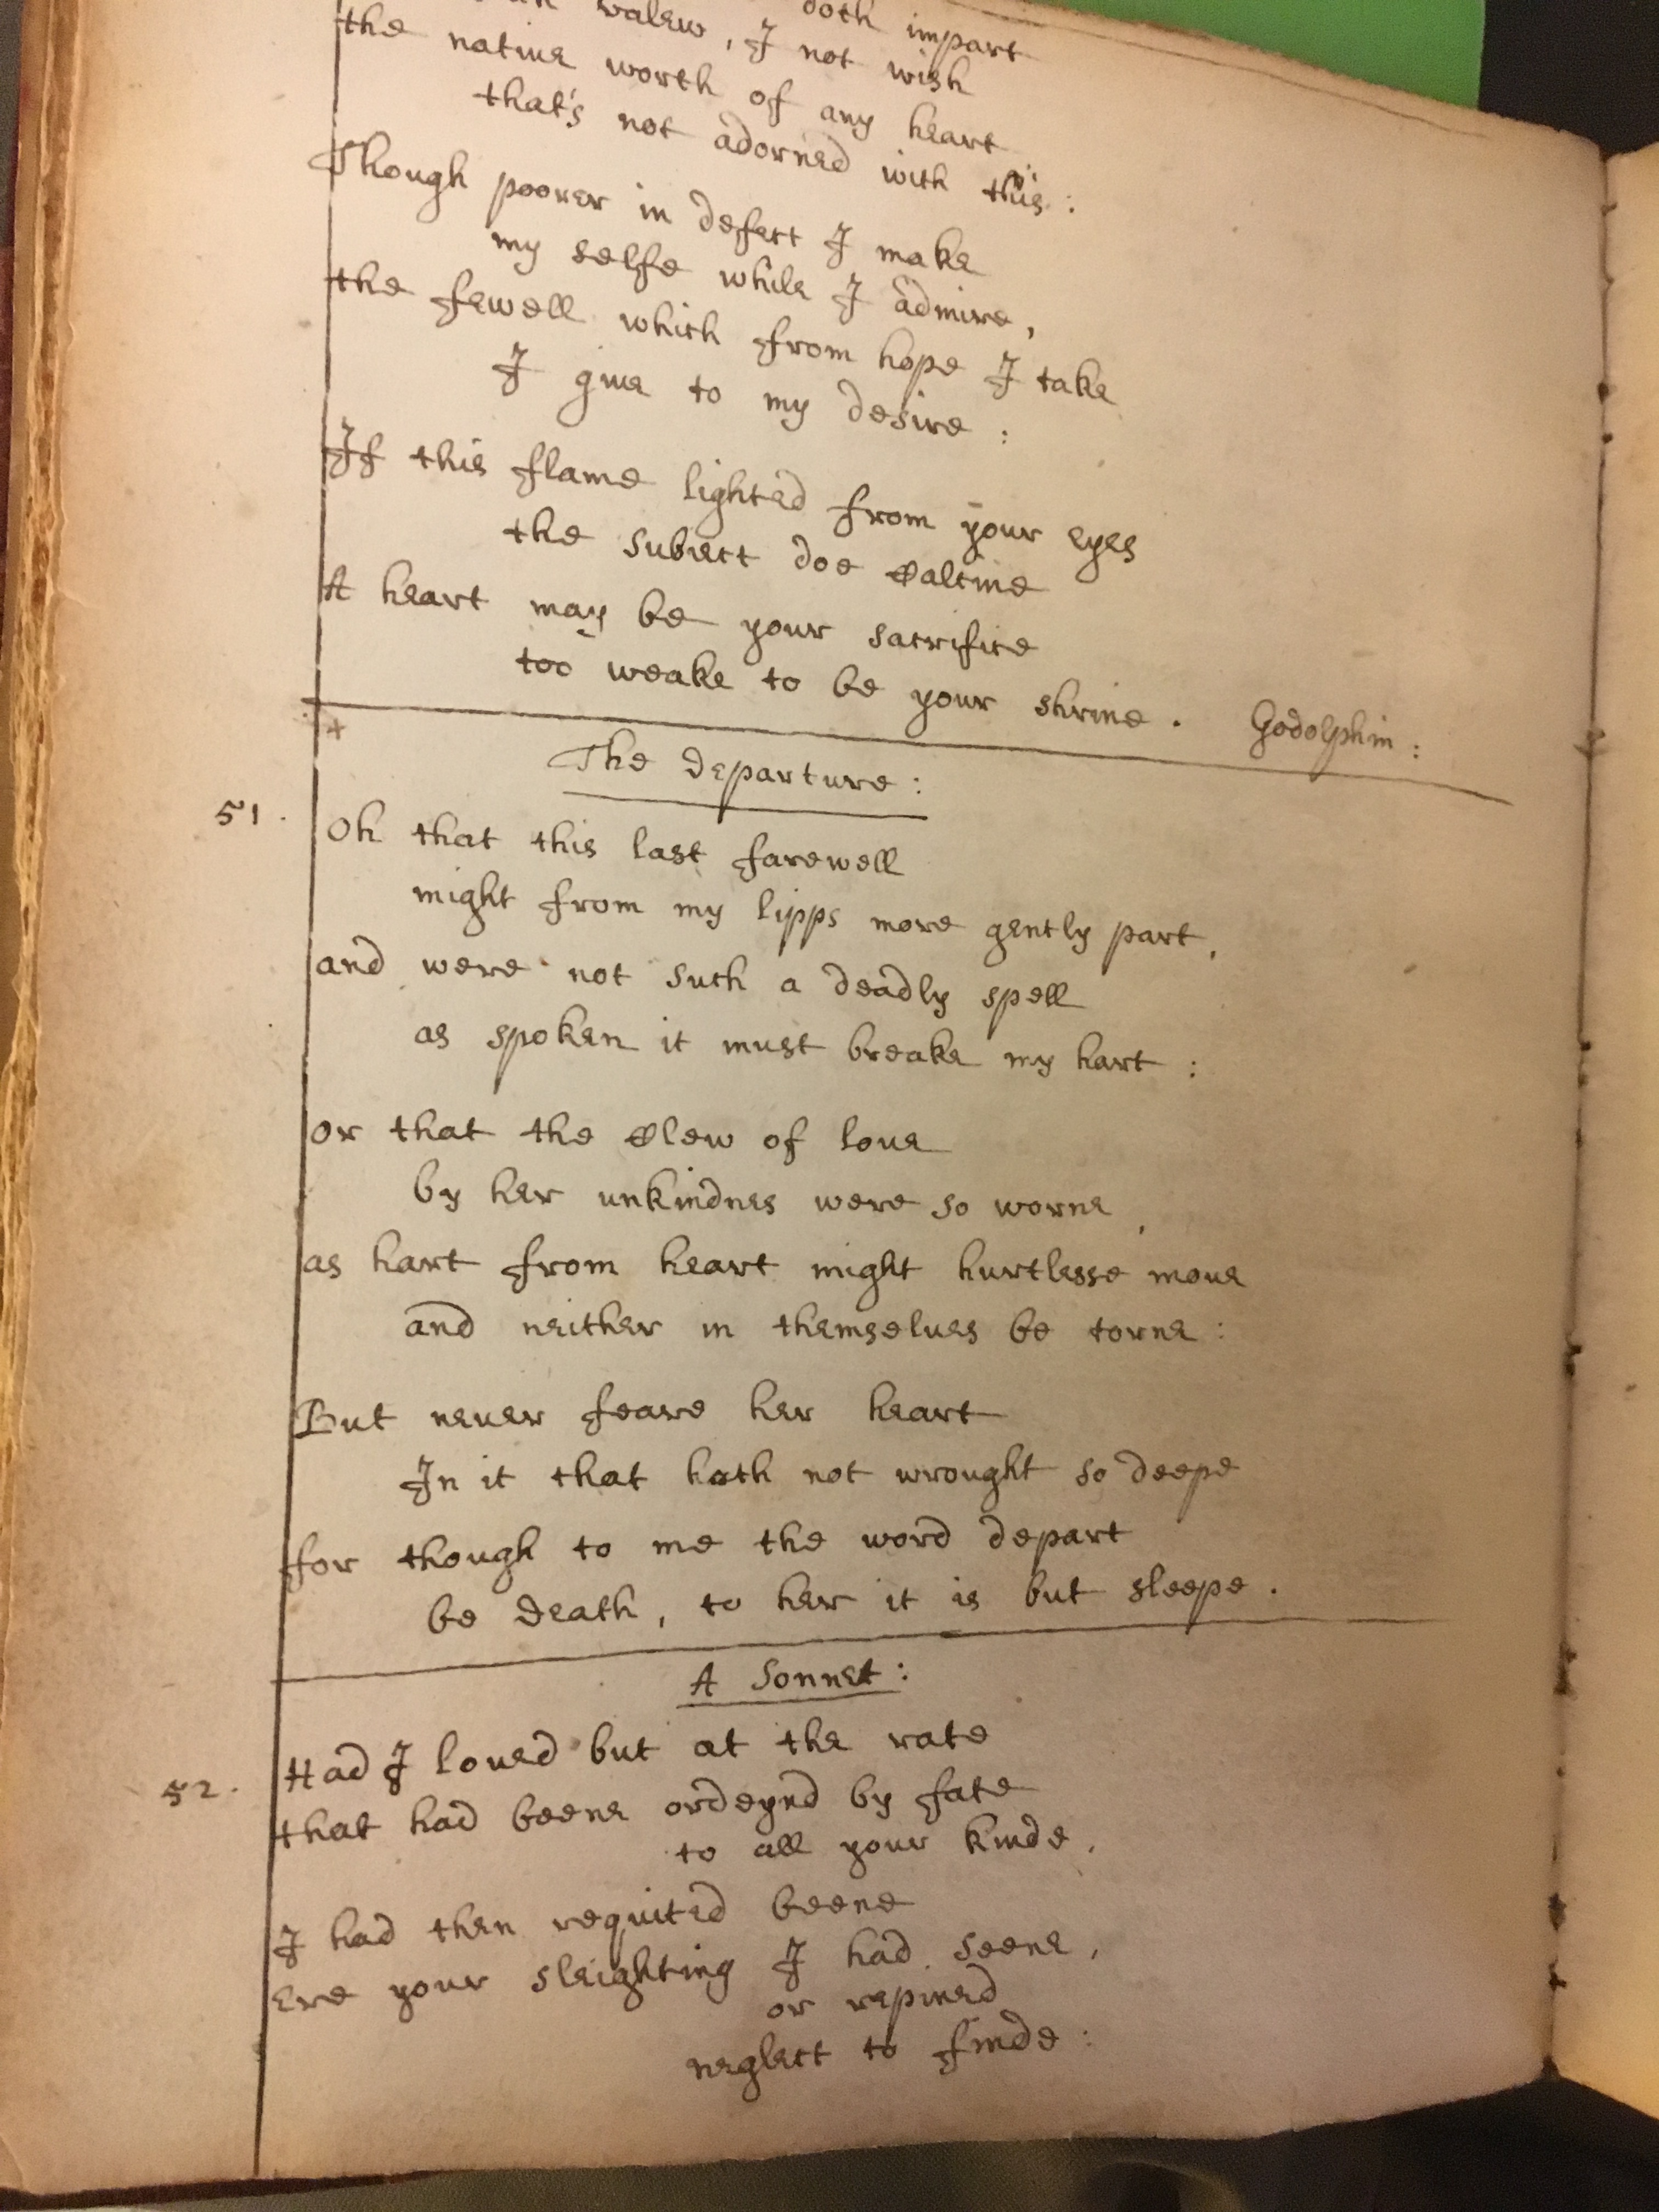 valew, doth impart
the natiue worth of any heart
I not wish
that's not adorned with this:
Though poorer in defect I make
my selfe while I admire,
the fewell which from hope I take
I giue to my desire:
If this flame lighted from your eyes
the subiect doe Calcine
A heart may be your sacrifice
too weake to be your shrine. Godolphin:
+
The departure:
51.
Oh that this last farewell
might from my lipps more gently part,
and were not such a deadly spell
as spoken it must breake my hart:
or that the Clew of loue
by her unkindnes were so worne,
as hart from heart might hurtlesse moue
and neither in themselues be torne:
But neuer feare her heart
In it that hath not wrought so deepe
for though to me the word depart
be death, to her it is but sleepe.
A Sonnet:
52.
Had I loued but at the rate
that had beene ordeynd by fate
to all your kinde,
I had then requited beene
Ere your sleighting I had seene,
or repined
neglect to finde: